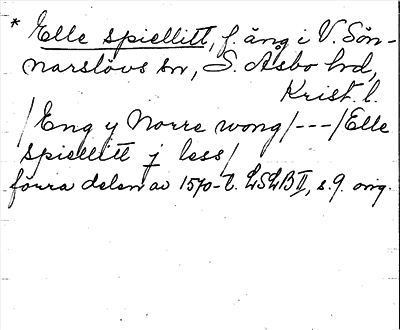 * Elle spiellitt, f. äng i V. Sön-
narslövs sn, S. Åsbo hd,
Krist. l.
/Eng y Norre wong/---/Elle
spiellitt j less/
förra delen av 1570-t. LSLB II, s. 9. orig.